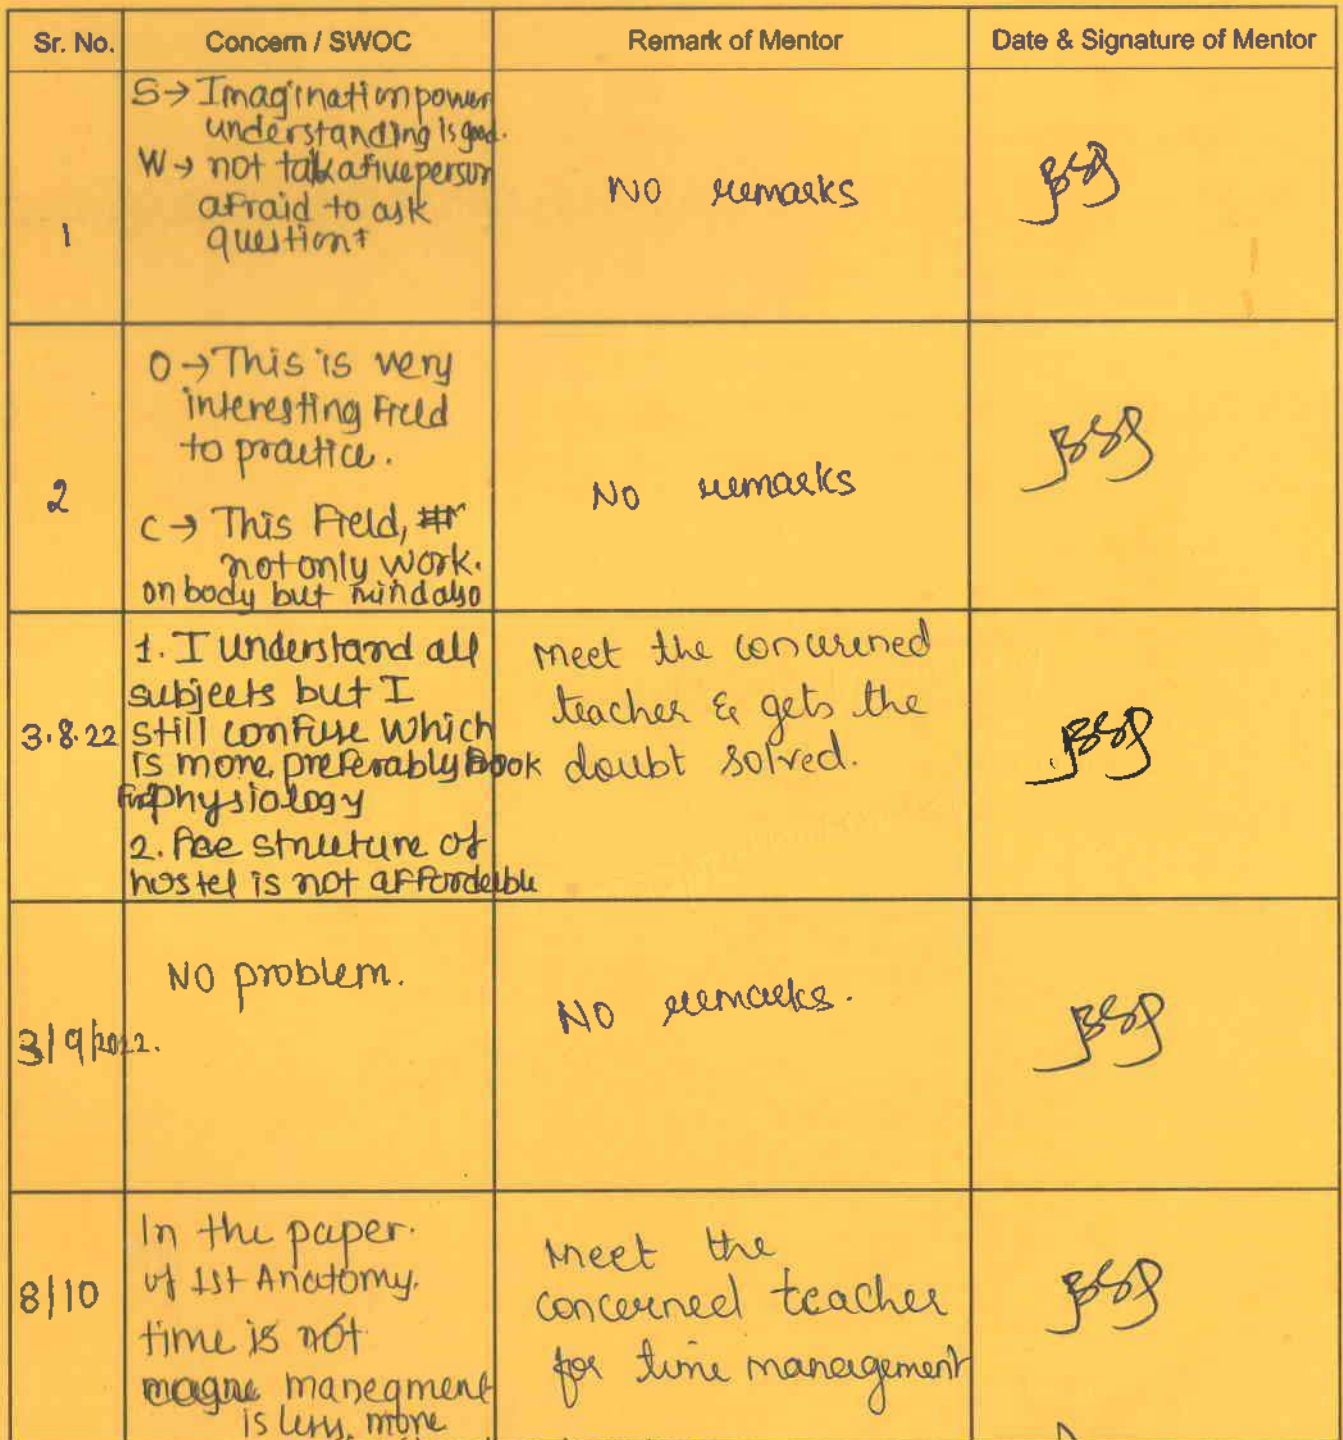 Sr. No. Concern / SWOC Remark of Mentor Date & Signature of Mentor
1
S→ Imagination power
understanding is good.
W→ not talkative person
afraid to ask
question
No remarks
2
O→ This is very
interesting Field
to practice.
C→ This Field,
not only work.
on body but mind also
No remarks
3.8.22
1. I understand all
subjects but I
still confuse which
is more preferably Book
For physiology
2. Fee structure of
hostel is not affordeble
meet the concurened
teacher & gets the
doubt solved.
3/9/2022.
No problem.
No remarks.
8/10
In the paper.
of 1st Anatomy.
time is not
manegment
is less, more
Meet the
concerned teacher
for time management